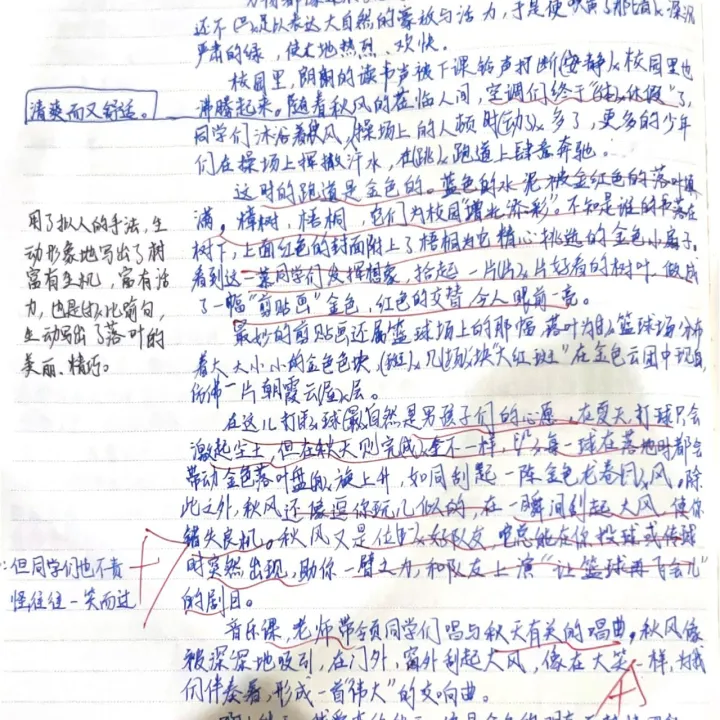 还不足以表达大自然的豪放与活力,于是便
严肃的绿,使大地热烈、欢快。
校园里,朗朗的读书声被下课铃声打断(安静),校园里也
沸腾起来。随着秋风的莅临人间,空调们终于"休假"了,
清爽而又舒适。
同学们沐浴着秋风,操场上的人顿时(动)多了,更多的少年
们在操场上挥撒汗水,在(跳)跑道上肆意奔驰。
这时的跑道是金色的。蓝色的水泥被金红色的落叶填
满。樟树,梧桐,它们为校园"增光添彩"。不知是谁的书落在
树下,上面红色的封面附上了梧桐为它精心挑选的金色小扇子。
看到这一幕同学们发挥想象,拾起一片片好看的树叶,做成
了一幅"剪贴画"金色,红色的交替令人眼前一亮。
用了拟人的手法,生
动形象地写出了树
富有生机,富有活
力,也是比喻句,
生动写出了落叶的
美丽、精巧。
最妙的剪贴画还属篮球场上的那幅,落叶为篮球场分布
着大大小小的金色色块,几块"大红斑"在金色云团中现身
仿佛一片朝霞云层。
在这儿打球自然是男孩子们的心愿。在夏天打球只会
激起尘土,但在秋天则完全不一样,每一球在落地时都会
带动金色落叶盘旋上升,如同刮起一阵金色龙卷风。除
此之外,秋风还像逗你玩儿似的,在一瞬间刮起大风,使你
错失良机。秋风又是位好队友,总能在你投球或传球
时突然出现,助你一臂之力,和队友上演"让篮球再飞会儿"
的剧目。
但同学们也不责
怪往往一笑而过
音乐课,老师带领同学们唱与秋天有关的唱曲,秋风像
被深深地吸引,在门外,窗外刮起大风,像在大笑一样,为我
们伴奏着,形成一首"伟大"的交响曲。